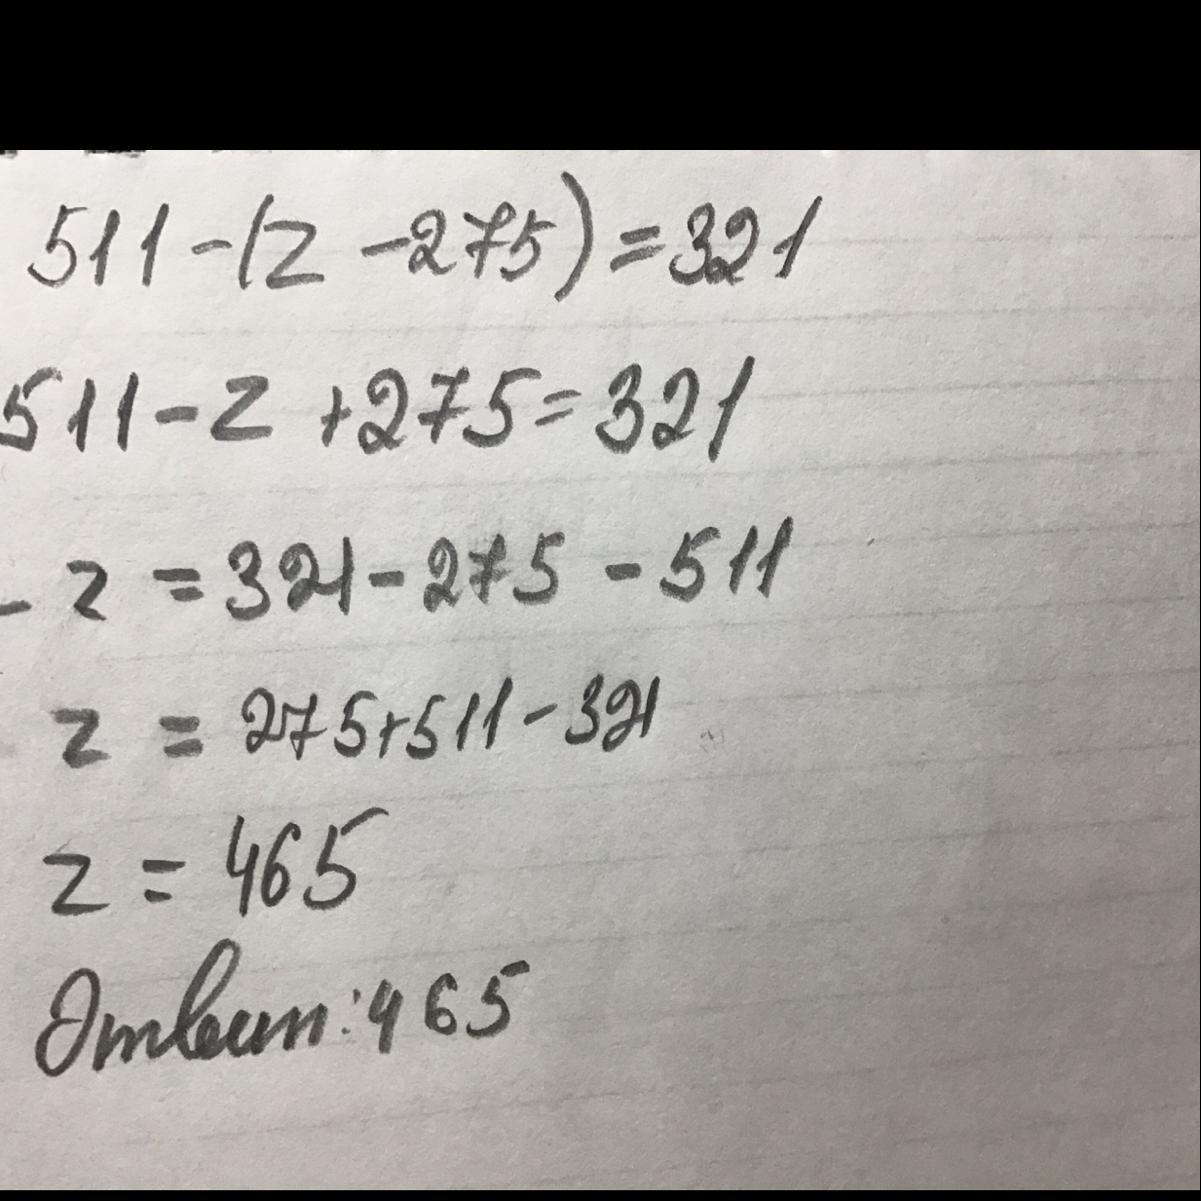 511-(z-275)=321
511-z+275=321
-z=321-275-511
z=275+511-321
z=465
Ответ:465